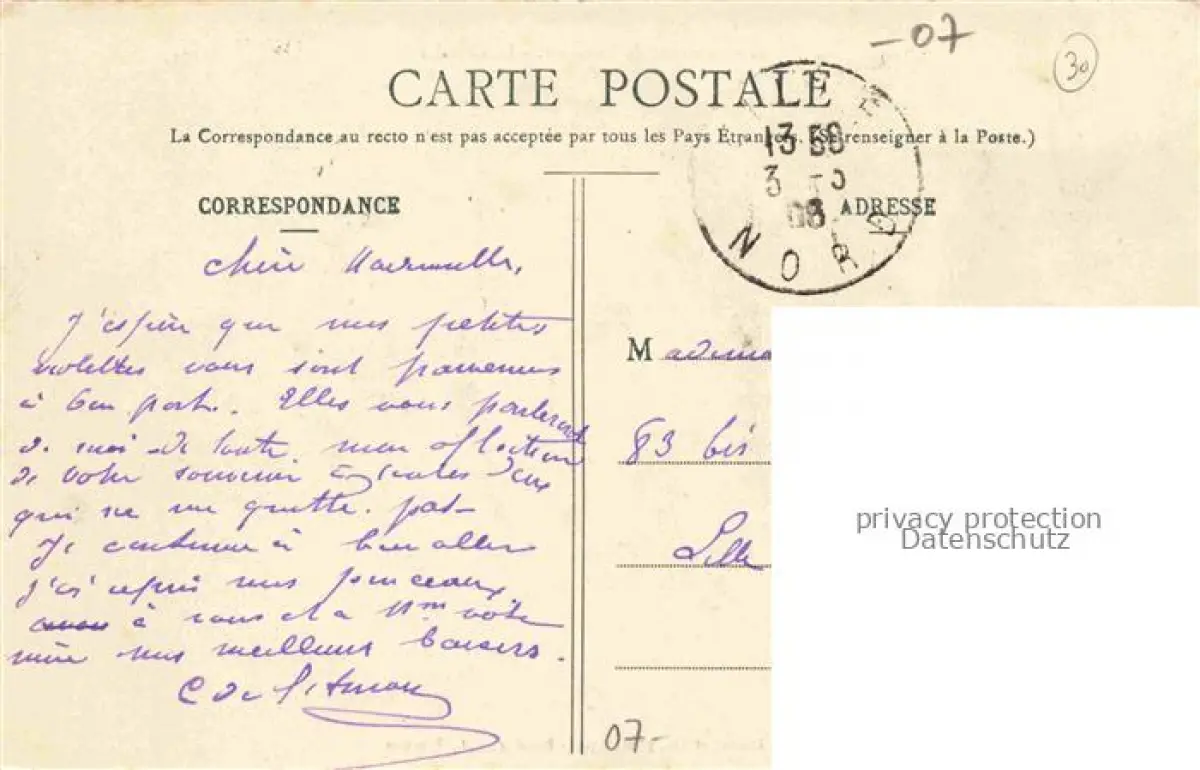 -07
30
CARTE POSTALE
La Correspondance au recto n'est pas acceptée par tous les Pays Étrangers. (Se renseigner à la Poste.)
13 50
3 -3
08
NORD
CORRESPONDANCE
ADRESSE
chère Mademoiselle,
J'espère que mes petites
violettes vous sont parvenues
à bon port. Elles vous parleront
de moi de toute mon affection
de votre souvenir à toutes deux
qui ne me quitte pas
Je continue à bien aller
j'ai repris mes pinceaux.
à vous et à Mme votre
mère mes meilleurs baisers.
C de
M
83 bis
Lille
privacy protection
Datenschutz
07-